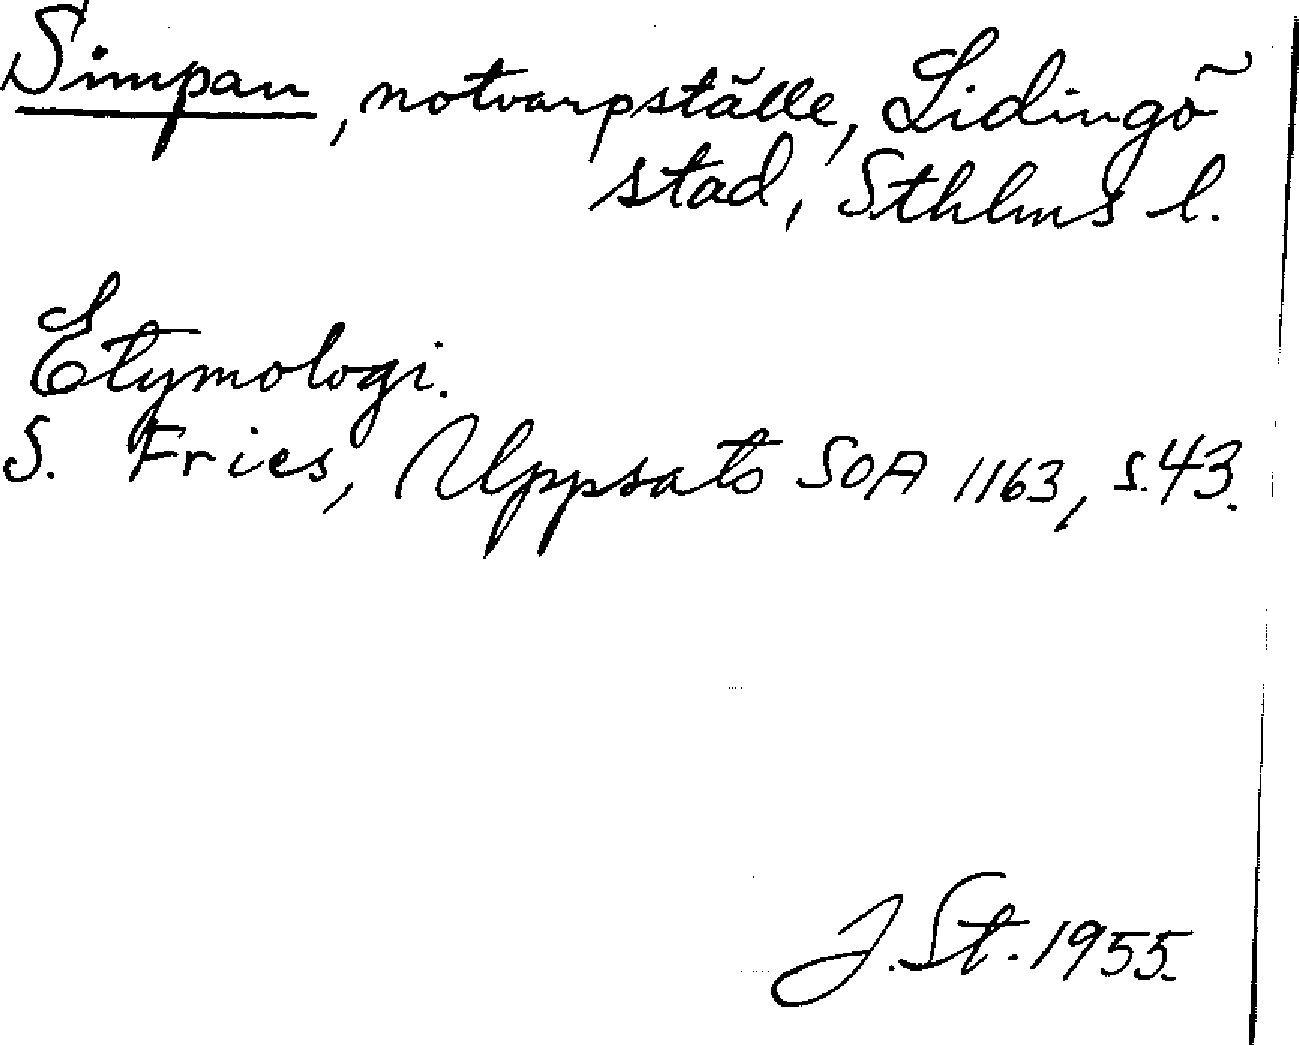 Simpan, notvarpställe, Lidingö
stad, Sthlms l.
Etymologi.
S. Fries, Uppsats SOA 1163, s. 43.
J. St. 1955.